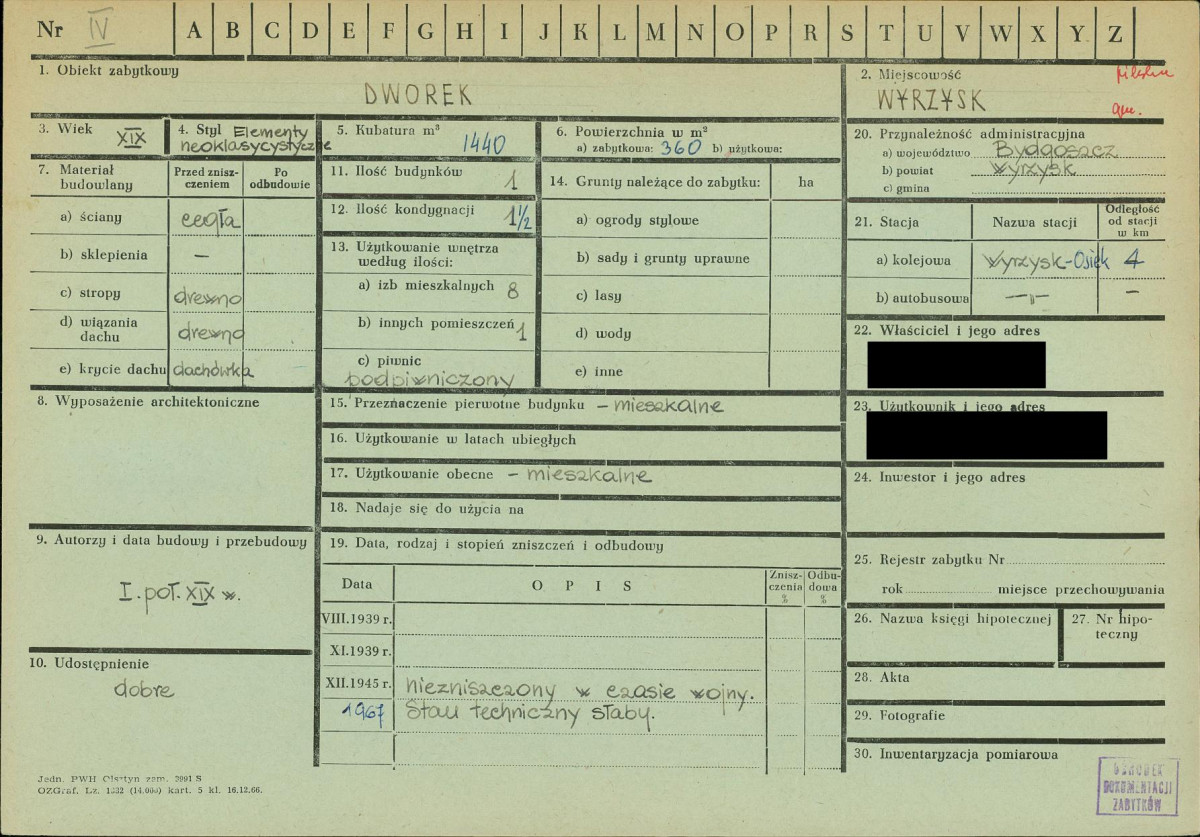 Nr IV A B C D E F G H I J K L M N O P R S T U V W X Y Z
1. Obiekt zabytkowy
DWOREK
2. Miejscowość
WYRZYSK
3. Wiek XIX
4. Styl Elementy
neoklasycystyczne
5. Kubatura m³
1440
6. Powierzchnia w m²
a) zabytkowa: 360 b) użytkowa:
7. Materiał
budowlany
Przed znisz-
czeniem
Po
odbudowie
a) ściany cegła
b) sklepienia —
c) stropy drewno
d) wiązania
dachu drewno
e) krycie dachu dachówka
8. Wyposażenie architektoniczne
9. Autorzy i data budowy i przebudowy
I. poł. XIX w.
10. Udostępnienie
dobre
11. Ilość budynków 1
12. Ilość kondygnacji 1 1/2
13. Użytkowanie wnętrza
według ilości:
a) izb mieszkalnych 8
b) innych pomieszczeń 1
c) piwnic
podpiwniczony
14. Grunty należące do zabytku: ha
a) ogrody stylowe
b) sady i grunty uprawne
c) lasy
d) wody
e) inne
15. Przeznaczenie pierwotne budynku – mieszkalne
16. Użytkowanie w latach ubiegłych
17. Użytkowanie obecne – mieszkalne
18. Nadaje się do użycia na
19. Data, rodzaj i stopień zniszczeń i odbudowy
Data O P I S Znisz-
czenia
% Odbu-
dowa
%
VIII.1939 r.
XI.1939 r.
XII.1945 r. niezniszczony w czasie wojny.
1967 Stan techniczny słaby.
20. Przynależność administracyjna
a) województwo Bydgoszcz
b) powiat Wyrzysk
c) gmina
21. Stacja Nazwa stacji Odległość
od stacji
w km
a) kolejowa Wyrzysk-Osiek 4
b) autobusowa —„— —
22. Właściciel i jego adres
23. Użytkownik i jego adres
24. Inwestor i jego adres
25. Rejestr zabytku Nr
rok miejsce przechowywania
26. Nazwa księgi hipotecznej
27. Nr hipo-
teczny
28. Akta
29. Fotografie
30. Inwentaryzacja pomiarowa
OŚRODEK
DOKUMENTACJI
ZABYTKÓW
Jedn. PWH Olsztyn zam. 3991 S
OZGraf. Lz. 1332 (14.000) kart. 5 kl. 16.12.66.